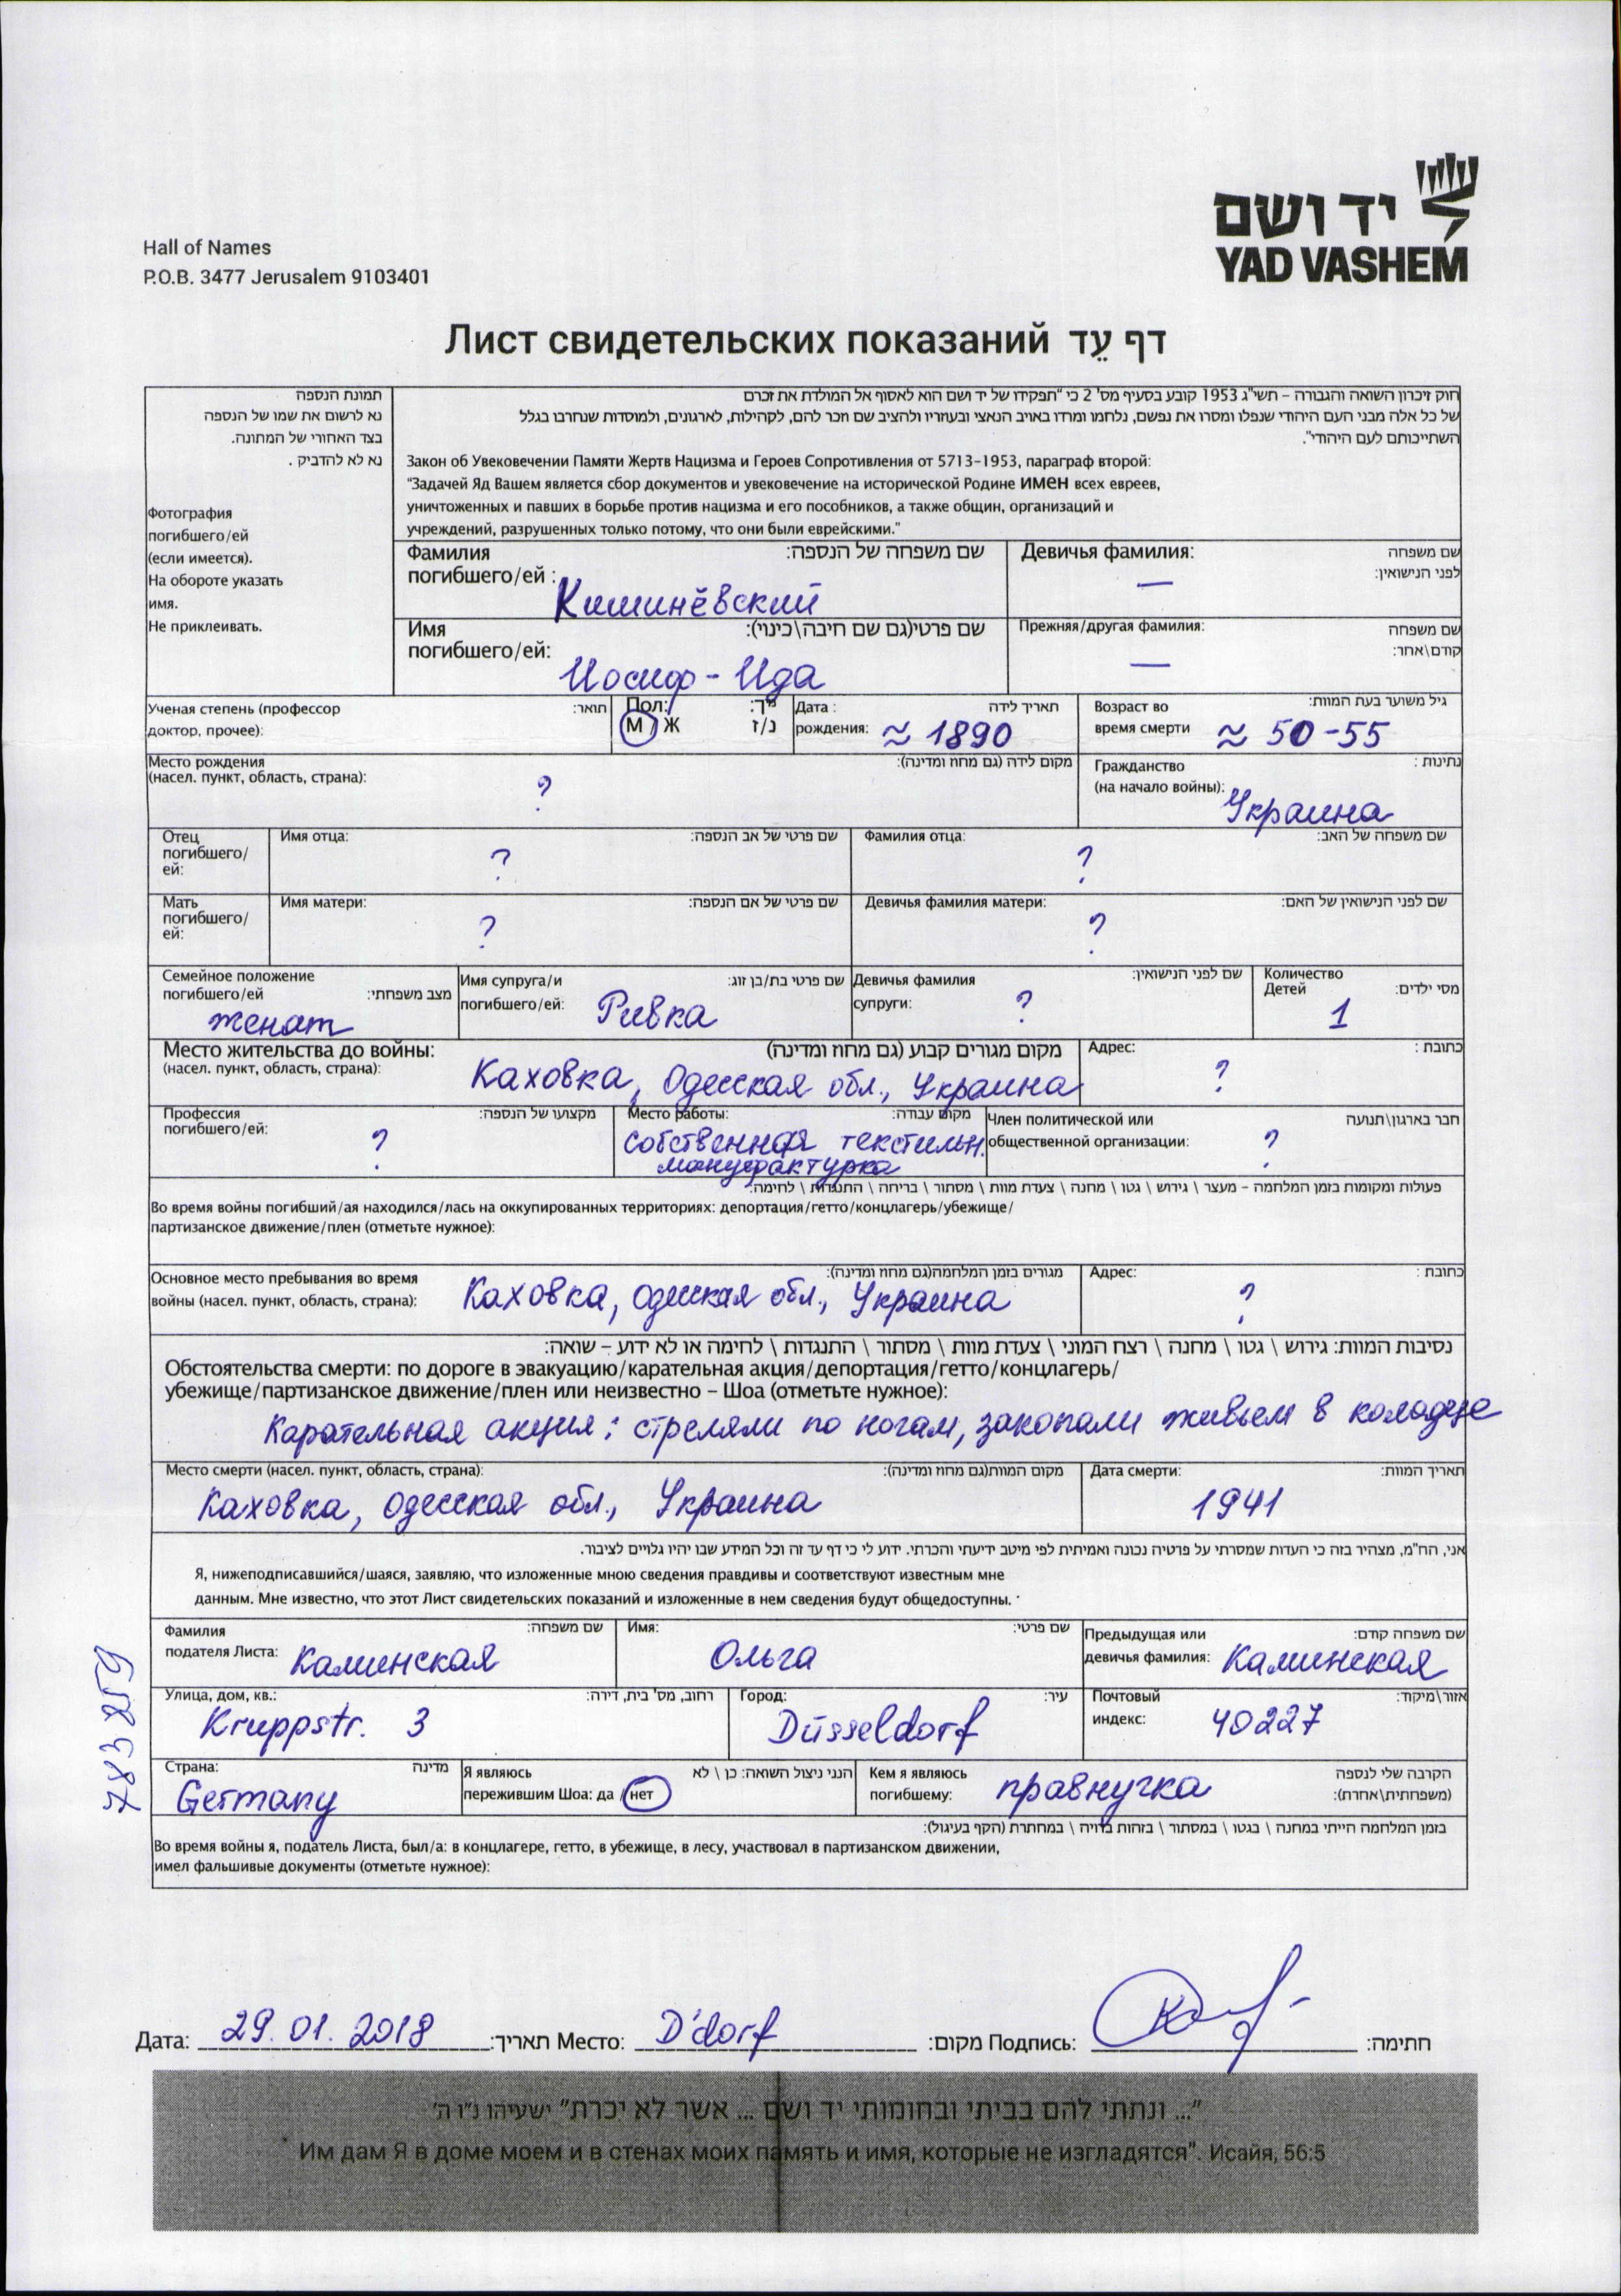 יד ושם
YAD VASHEM
Hall of Names
P.O.B. 3477 Jerusalem 9103401
Лист свидетельских показаний דף עֵד
תמונת הנספה
נא לרשום את שמו של הנספה
בצד האחורי של התמונה.
נא לא להדביק .
Фотография
погибшего/ей
(если имеется).
На обороте указать
имя.
Не приклеивать.
חוק זיכרון השואה והגבורה – תשי"ג 1953 קובע בסעיף מס' 2 כי "תפקידו של יד ושם הוא לאסוף אל המולדת את זכרם
של כל אלה מבני העם היהודי שנפלו ומסרו את נפשם, נלחמו ומרדו באויב הנאצי ובעוזריו ולהציב שם וזכר להם, לקהילות, לארגונים, ולמוסדות שנחרבו בגלל
השתייכותם לעם היהודי".
Закон об Увековечении Памяти Жертв Нацизма и Героев Сопротивления от 5713-1953, параграф второй:
"Задачей Яд Вашем является сбор документов и увековечение на исторической Родине имен всех евреев,
уничтоженных и павших в борьбе против нацизма и его пособников, а также общин, организаций и
учреждений, разрушенных только потому, что они были еврейскими."
Фамилия погибшего/ей : שם משפחה של הנספה:
Кишинёвский
Девичья фамилия: שם משפחה לפני הנישואין:
—
Имя погибшего/ей: שם פרטי(גם שם חיבה\כינוי):
Иосиф - Ида
Прежняя/другая фамилия: שם משפחה קודם\אחר:
—
Ученая степень (профессор доктор, прочее): תואר:
Пол: מין:
М / Ж ז/נ
Дата рождения: תאריך לידה
≈ 1890
Возраст во время смерти גיל משוער בעת המוות:
≈ 50-55
Место рождения (насел. пункт, область, страна): מקום לידה (גם מחוז ומדינה):
?
Гражданство (на начало войны): נתינות :
Украина
Отец погибшего/ей:
Имя отца: שם פרטי של אב הנספה:
?
Фамилия отца: שם משפחה של האב:
?
Мать погибшего/ей:
Имя матери: שם פרטי של אם הנספה:
?
Девичья фамилия матери: שם לפני הנישואין של האם:
?
Семейное положение погибшего/ей מצב משפחתי:
женат
Имя супруга/и погибшего/ей: שם פרטי בת/בן זוג:
Ривка
Девичья фамилия супруги: שם לפני הנישואין:
?
Количество Детей מסי ילדים:
1
Место жительства до войны: מקום מגורים קבוע (גם מחוז ומדינה)
(насел. пункт, область, страна):
Каховка, Одесская обл., Украина
Адрес: כתובת :
?
Профессия погибшего/ей: מקצועו של הנספה:
?
Место работы: מקום עבודה:
собственная текстильн.
мануфактурка
Член политической или общественной организации: חבר בארגון\תנועה
?
פעולות ומקומות בזמן המלחמה – מעצר \ גירוש \ גטו \ מחנה \ צעדת מוות \ מסתור \ בריחה \ התנגדות \ לחימה:
Во время войны погибший/ая находился/лась на оккупированных территориях: депортация/гетто/концлагерь/убежище/
партизанское движение/плен (отметьте нужное):
Основное место пребывания во время войны (насел. пункт, область, страна): מגורים בזמן המלחמה(גם מחוז ומדינה):
Каховка, одесская обл., Украина
Адрес: כתובת :
?
נסיבות המוות: גירוש \ גטו \ מחנה \ רצח המוני \ צעדת מוות \ מסתור \ התנגדות \ לחימה או לא ידוע – שואה:
Обстоятельства смерти: по дороге в эвакуацию/карательная акция/депортация/гетто/концлагерь/
убежище/партизанское движение/плен или неизвестно – Шоа (отметьте нужное):
Карательная акция: стреляли по ногам, закопали живьем в колодце
Место смерти (насел. пункт, область, страна): מקום המוות(גם מחוז ומדינה):
Каховка, Одесская обл., Украина
Дата смерти: תאריך המוות:
1941
אני, הח"מ, מצהיר בזה כי העדות שמסרתי על פרטיה נכונה ואמיתית לפי מיטב ידיעתי והכרתי. ידוע לי כי דף עד זה וכל המידע שבו יהיו גלויים לציבור.
Я, нижеподписавшийся/шаяся, заявляю, что изложенные мною сведения правдивы и соответствуют известным мне
данным. Мне известно, что этот Лист свидетельских показаний и изложенные в нем сведения будут общедоступны.
Фамилия подателя Листа: שם משפחה:
Каминская
Имя: שם פרטי:
Ольга
Предыдущая или девичья фамилия: שם משפחה קודם:
Каминская
Улица, дом, кв.: רחוב, מס' בית, דירה:
Kruppstr. 3
Город: עיר:
Düsseldorf
Почтовый индекс: אזור\מיקוד:
40227
Страна: מדינה
Germany
Я являюсь пережившим Шоа: да / нет הנני ניצול השואה: כן \ לא
Кем я являюсь погибшему: הקרבה שלי לנספה (משפחתית\אחרת):
правнучка
בזמן המלחמה הייתי במחנה \ בגטו \ במסתור \ בזהות בדויה \ במחתרת (הקף בעיגול):
Во время войны я, податель Листа, был/а: в концлагере, гетто, в убежище, в лесу, участвовал в партизанском движении,
имел фальшивые документы (отметьте нужное):
783 259
Дата: 29.01.2018 תאריך: Место: D'dorf מקום: Подпись: חתימה:
"... ונתתי להם בביתי ובחומותי יד ושם ... אשר לא יכרת" ישעיהו נ"ו ה'
Им дам Я в доме моем и в стенах моих память и имя, которые не изгладятся". Исайя, 56:5